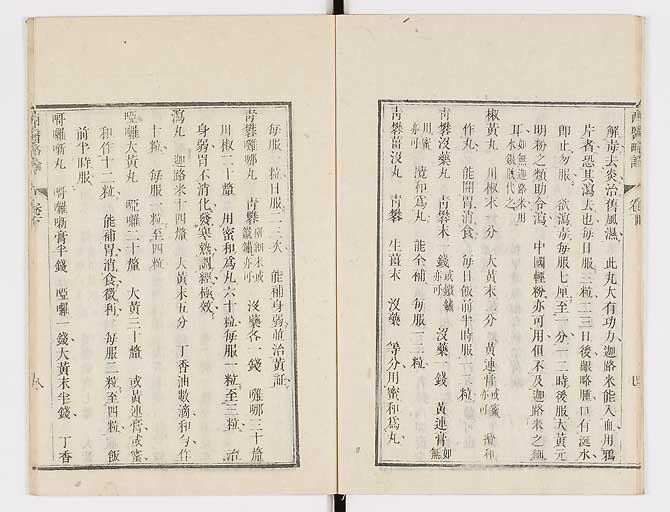 解毒去炎治舊風濕、此丸大有功力、迦路米能入血用鴉
片者恐其瀉去也每日服三粒二三日後齦略腫口有涎水
卽止勿服、欲瀉毒每服七厘至一分一二時後服大黃元
明粉之類助令瀉、中國輕粉亦可用但不及迦路米之細
耳、如無迦路米用水銀散代之、
椒黃丸 川椒末一分 大黃末二分 黃連膏或蜜亦可 攪和
作丸、能開胃消食、每日飯前半時服一二粒
靑礬沒藥丸 靑礬末一錢或鐵鏽亦可 沒藥一錢 黃連膏如無
用蜜亦可 攪和爲丸、能全補、每服二三粒、
靑礬茴沒丸 靑礬 生茴末 沒藥 等分用蜜和爲丸、
每服一粒日服二三次、能補身弱並治黃証、
靑礬囉哪丸 靑礬 沒藥各一錢 囉哪三十釐
川椒二十釐 用蜜和爲丸六十粒每服一粒至三粒、治
身弱胃不消化、發寒熱調經極效、
瀉丸 迦路米十四釐 大黃末五分 丁香油數滴和勻作
十粒、每服一粒至四粒
啞囉大黃丸 啞囉二十釐 大黃三十釐 或黃連膏或蜜、
和作十二粒、能補胃消食微利、每服二粒至四粒、飯
前半時服、
嘚囉嘶丸 嘚囉嘶膏半錢 啞囉一錢、大黃末半錢、丁香
西醫略論
卷下